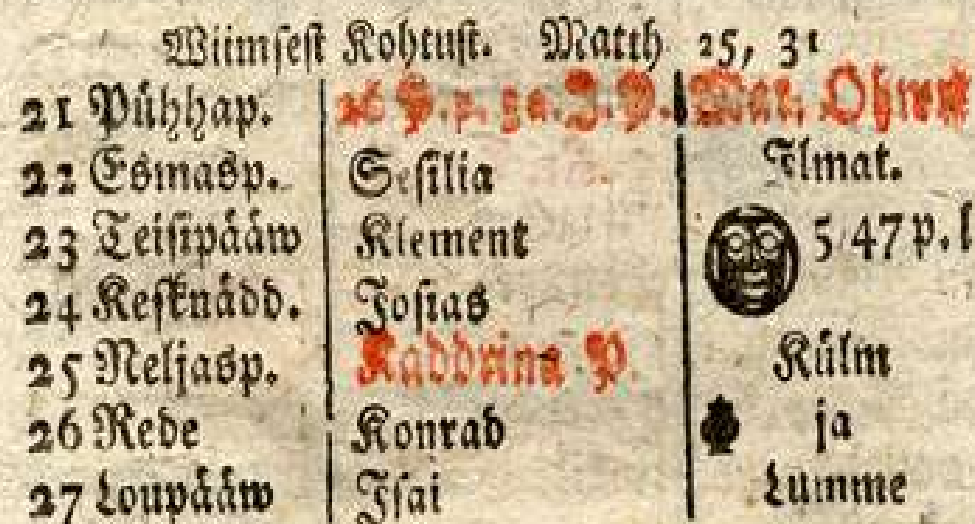 Wiimsest Kohtust. Matth 25, 31
21 Pühhap. 26 P.p. 3a.J.P. Mar. Ohwr
22 Esmasp. Sesilia Ilmat.
23 Teisipääw Klement 5 47 p. l
24 Kesknädd. Josias
25 Neljasp. Kaddrina P. Külm
26 Rede Konrad ja
27 Loupääw Isai Lumme